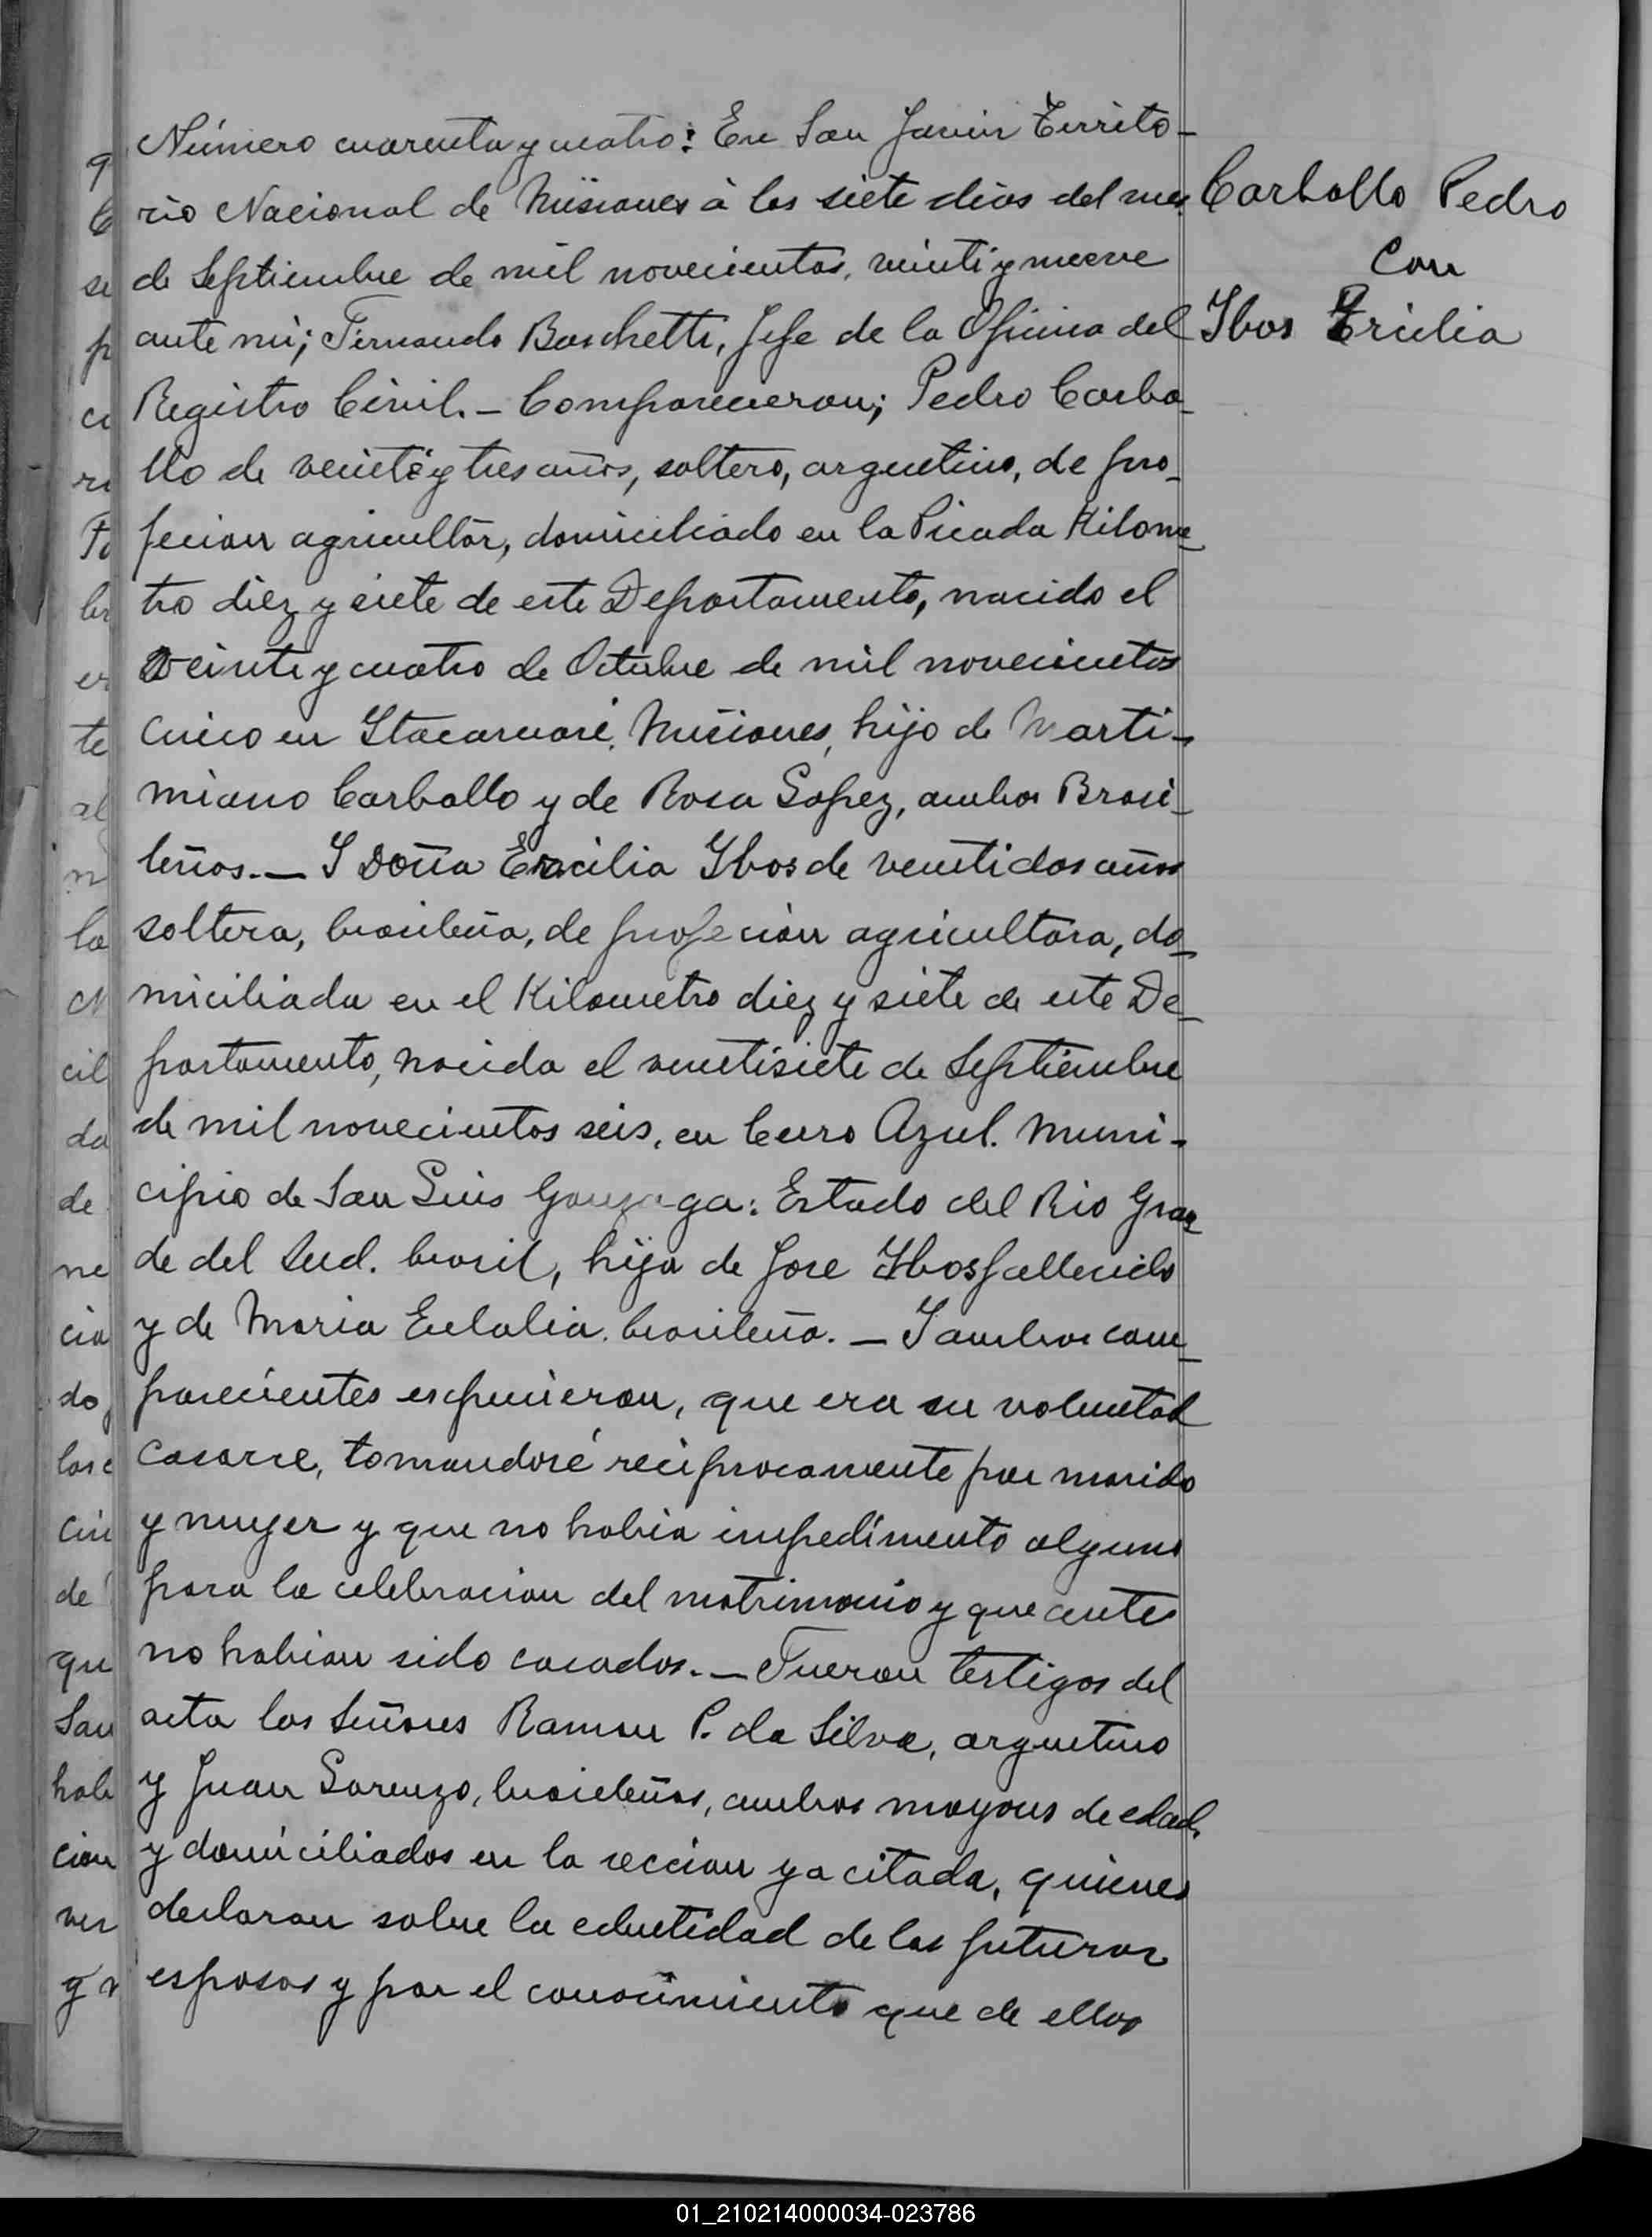 Número cuarenta y cuatro: En San Javier Territo-
rio Nacional de Misiones à los siete dias del mes
de Septiembre de mil novecientos, veinti y nueve
ante mi; Fernando Boschetti, Jefe de la Oficina del
Registro Civil. - Comparecieron; Pedro Carba-
llo de veinte y tres años, soltero, argentino, de pro-
fecion agricultor, domiciliado en la Picada Kilome-
tro diez y siete de este Departamento, nacido el
veinte y cuatro de Octubre de mil novecientos
cinco en Itacaruaré, Misiones, hijo de Marti-
miano Carballo y de Rosa Lopez, ambos Brasi-
leños. — I Doña Ercilia Ibos de ventidos años
soltera, brasileña, de profecion agricultora, do-
miciliada en el Kilometro diez y siete de este De-
partamento, nacida el ventisiete de Septiembre
de mil novecientos seis, en Cerro Azul. Muni-
cipio de San Luis Gonzaga: Estado del Rio Gran
de del Sud. brasil, hija de Jose Ibos fallecido
y de Maria Eulalia. brasileña. — I ambos com-
parecientes espucieron, que era su voluntad
casarce, tomandosé reciprocamente por marido
y muger y que no habia impedimento alguno
para la celebracion del matrimonio y que antes
no habian sido casados. — Fueron testigos del
acta los Señores Ramon P. da Silva, argentino
y Juan Lorenzo, brasileños, ambos mayores de edad,
y domiciliados en la seccion ya citada, quienes
declaran sobre la edentidad de los futuros
esposos y por el conocimiento que de ellos
Carballo Pedro
Con
Ibos Ercilia
01_210214000034-023786